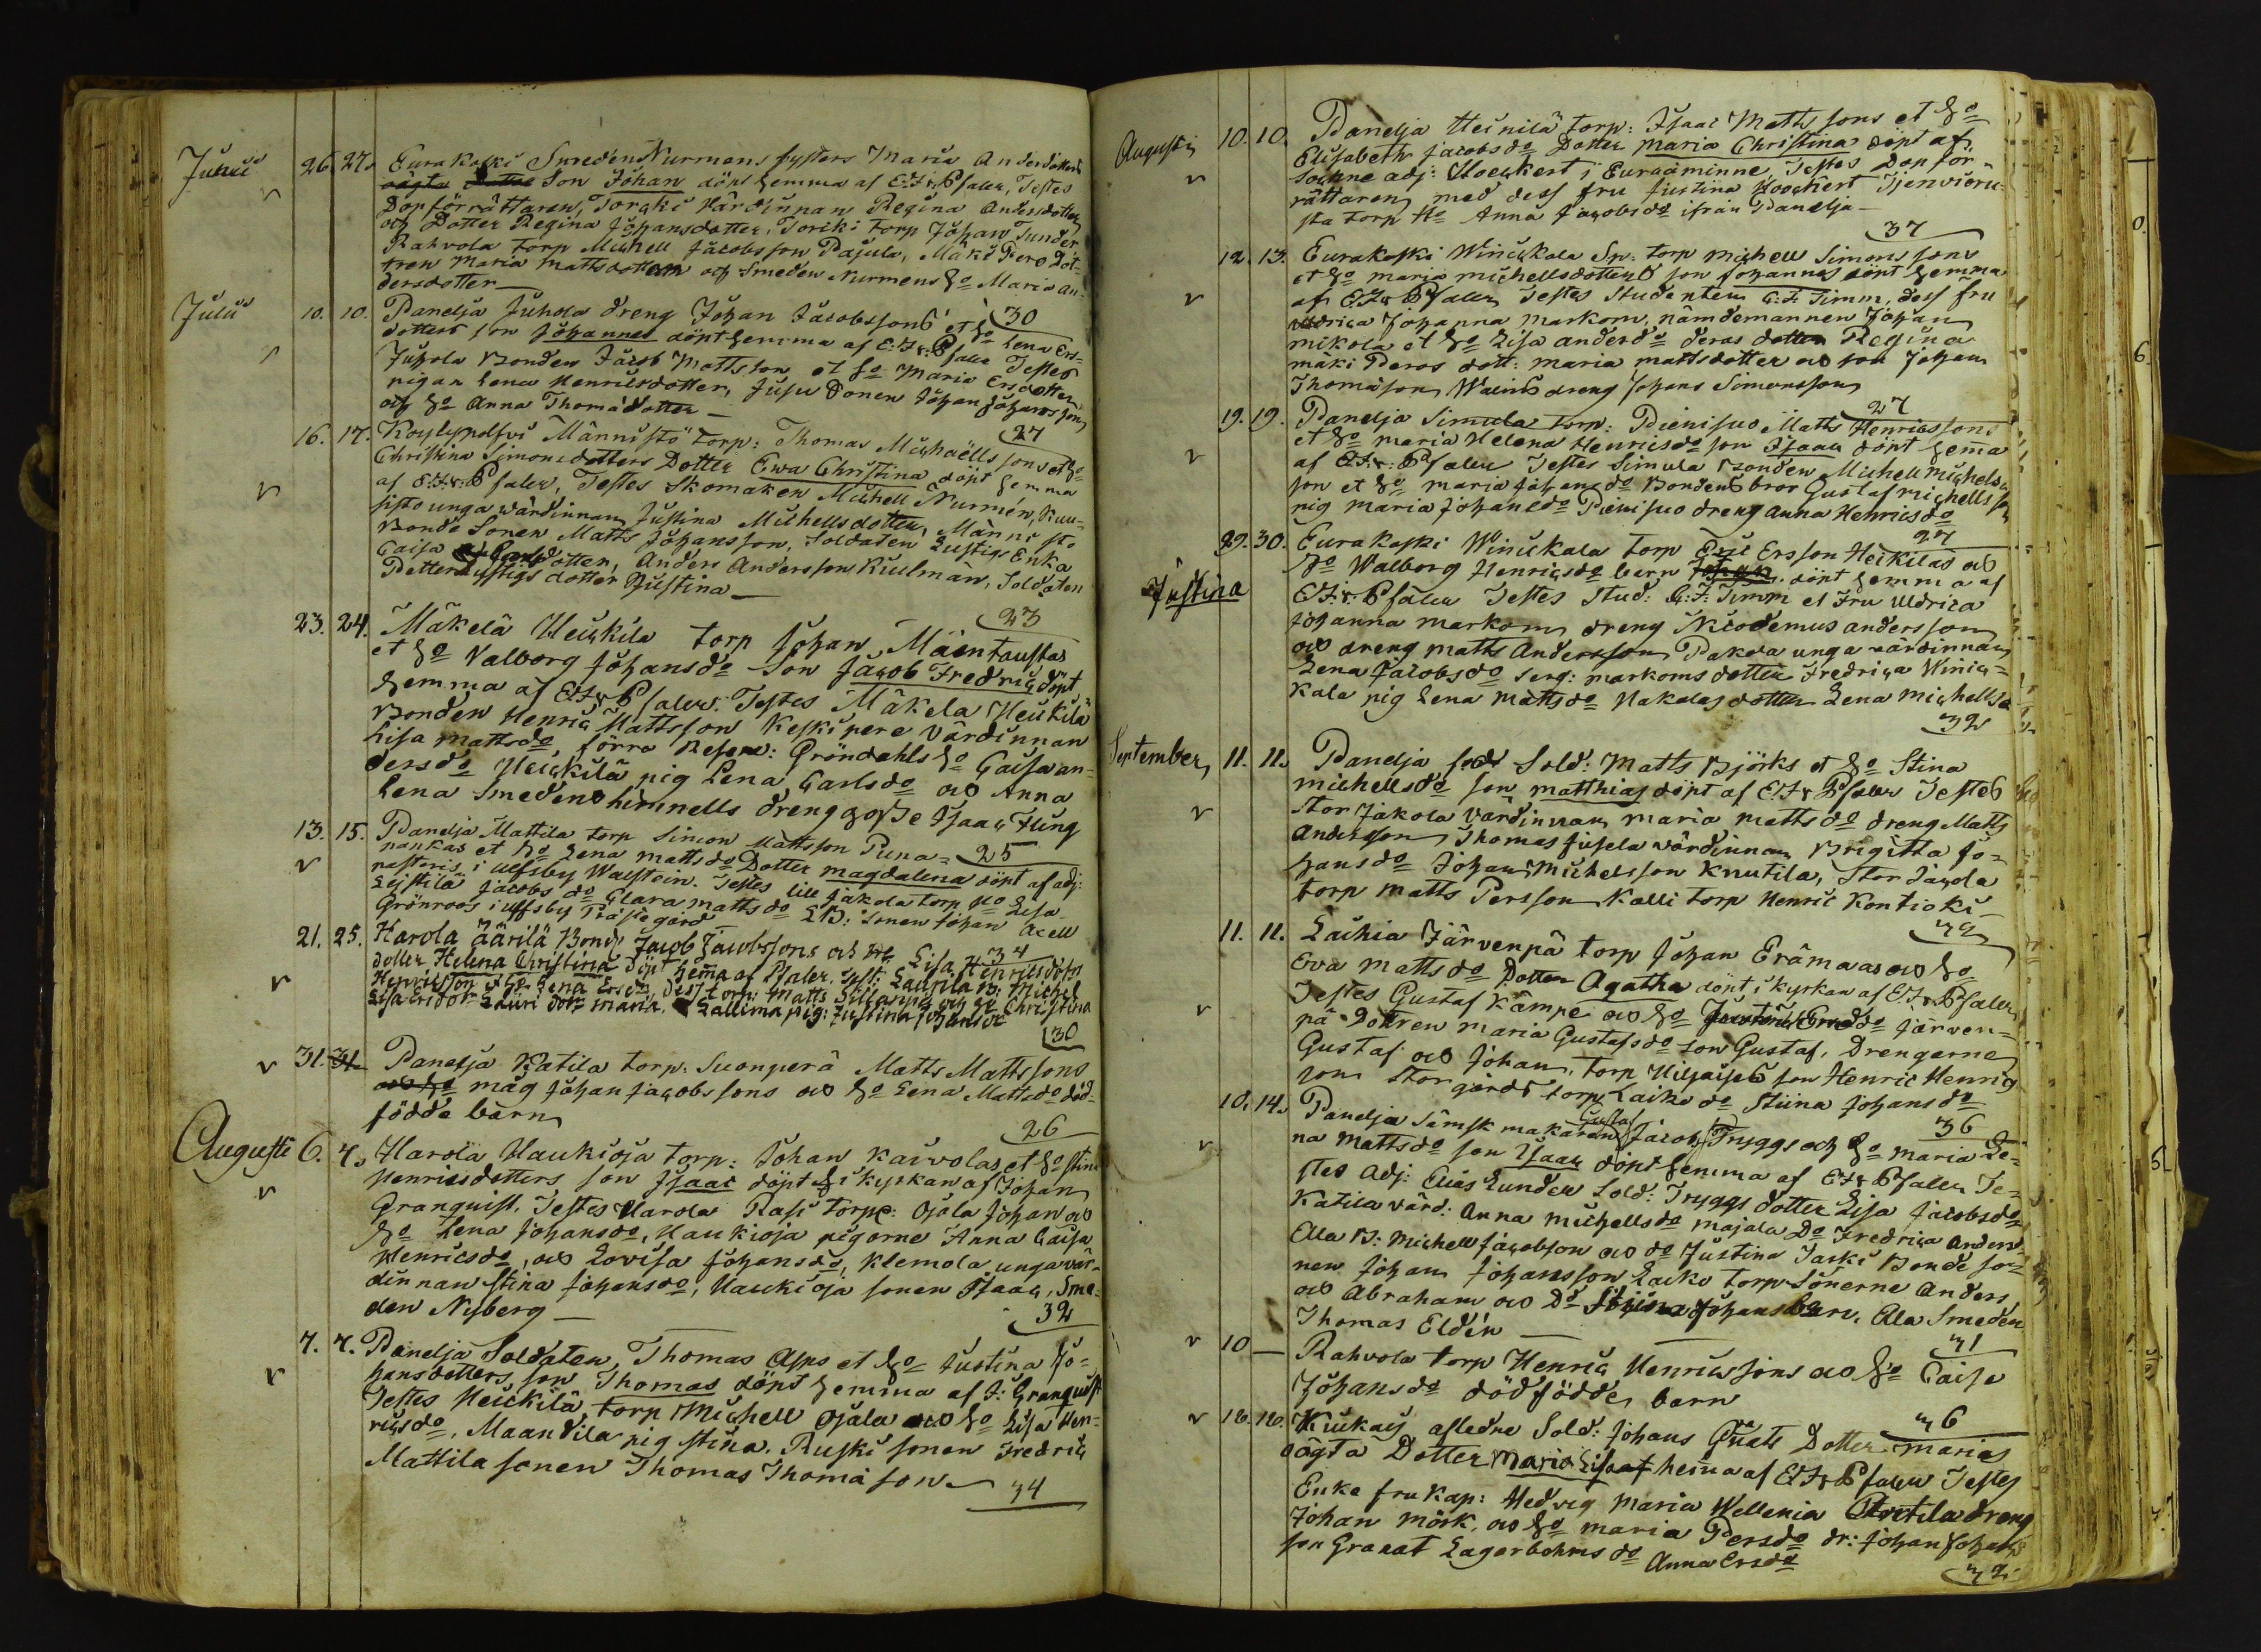 Junii 26. 27. Eurakoski Smeden Nurmens systers Maria Andersdotters
oägta Son Johan döpt hemma af E:I:r:Psaler, Testes
Dopförrättaren, Torcki Värdinnan Regina Andersdotter
och Dotter Regina Johansdotter, Toriki torp Johan Sunder
Rahvola torp Michell Jacobsson Pajula, Mäki Pero Dot-
tren Maria Mattsdotter och Smeden Nurmens ho Maria An-
dersdotter
30
Julii 10. 10. Panelja Juhola dreng Johan Jacobssons et ho Lena Ers-
dotters son Johannes döpt hemma af E:I:r:Psaler Testes
Juhola Bonden Jacob Mattsson et ho Maria Ersdotter
pigan Lena Henricsdotter, Jusu Sonen Johan Johansson
och ho Anna Thomädotter
27
16. 17. Köylypolfvi Männistö torp: Thomas Michaëllssons et ho
Christina Simonsdotters Dotter Ewa Christina döpt hemma
af E:I:r:Psaler, Testes Skomaken Michell Nurmén, Kuu-
sisto unga wärdinnan Justina Michellsdotter, Männisto
Bonde Sonen Matts Johansson, Soldaten Lustigs Enka
Caisa dotter, Anders Andersson Kiulmän, Soldaten
Petter Lystigs dotter Justina
23
23. 24. Mäkelä Heickilä torp Johan Mäentaustas
et ho Valborg Johansdo Son Jacob Fredric döpt
hemma af EI:r:Psaler. Testes Mäkela Heickilä
Bonden Henric Mattsson Keskipere Värdinnan
Lisa Mattsdo, förra Reserv: Gröndahls ho Caisa An-
dersdo Heickilä pig Lena Carlsdo och Anna
Lena Smedens himmells dreng gosse Isaac Fling
25
13. 15. Panelja Mattila torp Simon Mattsson Puna-
pankas et ho Lena Mattsdo Dotter Magdalena döpt af adj:
pastoris i Ulfsby Walstein. Testes lill Jakola torp ho Lisa
Lejstilä Jacobsdo Clara Mattsdo LB: Sonen Johan Axell
Grönroos i Ulfsby Prästegård
34
21. 25. Harola Äärilä Bond: Jacob Jacobssons och ho Lisa Henricsdotts
dotter Helena Christina döpt hema af Psaler. Test: Laurila B: Michel
Henricsson et ho Lena torp: Matts Sillanpä och ho Christina
Lisa Ersdotr Lauri dotr Maria. Lallima pig: Justina Johansdr
30
31. 31. Panelja Katila torp: Suonperä Matts Mattssons
och ho måg Johan Jacobssons och ho Lena Mattsdo död-
födde barn
26
Augusti 6. 7. Harola Haukioja torp: Johan Kaivolas et ho Stina
Henricsdotters son Isaac döpt i kyrkan af Johan
Granquist. Testes Harola Rasi torpe: Ojala Johan och
ho Lena Johansdo, Haukioja pigorne Anna Caisa
Henricsdo, och Lovisa Johansdo, Klemola unga vär-
dinnan Stina Johansdo, Haukioja sonen Isaac, Sme-
den Nyberg
32
7. 7. Panelja Soldaten, Thomas Asps et ho Justina Jo-
hansdotters, son Thomas döpt hemma af J: Granquist
Testes Heickilä torp Michell Ojala och ho Lisa Hen-
ricsdo, Maandila pig Stina. Ruski sonen Fredric
Mattila sonen Thomas Thomäson
34
Augusti 10. 10. Panelja Heinilä torp: Isaac Mattssons et ho
Elisabeth Jacobsdo Dotter Maria Christina döpt af
Sochne adj: Hoeckert i Euraåminne, Testes Dopför-
rättaren, med dess fru Justina Hoeckert Tjenvieru-
sta torp ho Anna Jacobsdo ifrån Panelja
37
12. 13. Eurakoski Winickala Sp: torp Michell Simonssons
et ho Maria Michellsdotters son Johannes döpt hemma
af EI:r:Psaler Testes Studenten G.F. Timm, dess fru
Uldrica Johanna Markom, nämdemannen Johan
Mikola et ho Lisa Andersdo deras dotter Regina
Mäki Peros dott: Maria Mattsdotter och son Johan
Thomäson, Wainis dreng Johans Simonsson
27
19. 19. Panelja Simula torp: Pienisuo Matts Henricssons
et ho Maria Helena Henricsdo son Isaac döpt hema
af EI:r:Psaler Testes Simula Bonden Michell Michels-
son et ho Maria Johansdo Bondens bror Gustaf Michellsson
pig Maria Johansdo Pienisuo dreng Anna Henricsdo
27
29. 30. Eurakoski Winickala torp Eric Ersson Heikilas och
ho Walborg Henricsdo barn Johan döpt hemma af
Justina EI:r:Psaler Testes Stud: G:F: Timm et Fru Uldrica
Johanna Markom dreng Nicodemus Andersson
och dreng Matts Andersson Pakola unga värdinnan
Lena Jacobsdo Serg: Markoms dotter Fredrica Winic-
kala pig Lena Mattsdo Hakolas dotter Lena Michellsdo
32
September 11. 11. Panelja Sold: Matts Björks et ho Stina
Michellsdo son Matthias döpt af EI:r:Psaler Testes
Stor Jakola Värdinnan Maria Mattsdo dreng Matts
Andersson, Thomas Jusela wärdinnan Brigitta Jo-
hansdo Johan Michelsson Knutila, Stor Jacola
torp Matts Persson Kalli torp Henric Kontioki
11. 11. Laihia Järvenpä torp Johan Erämaas och ho
Eva Mattsdo Dotter Agatha döpt i kyrkan af EI:r:Psaler
Testes Gustaf Kämpe och ho Järven-
pä Dottren Maria Gustafsdo son Gustaf, Drengarne
Gustaf och Johan, torp son Henric Henric
son Storgårds torp Laiko do Stiina Johansdo
36
10. 14. Panelja Sämskmakaren Gustaf Jacob Tryggs och ho Maria Le-
na Mattsdo son Isaac döpt hemma af EI:r:Psaler Te-
stes Adj: Elias Lunder Sold: Tryggs dotter Lisa Jacobsdo
Katila värd: Anna Michellsdo Majala Do Fredrica Andersd-
Ala B: Michell Jacobson och do Justina Jaski Bonde so-
nen Johan Johansson Laiko torp Sönerne Anders,
och Abraham och Do Johans. Ala Smeden
Thomas Eldén
31
10 — Rahvola torp Henric Henricssons och ho Caisa
Johansdo dödfödde barn
36
18. 18. Kiukais afledne Sold: Johans Quats Dotter Marias
oägta Dotter Maria Lisa hema af EI:r:Psaler Testes
Enke fru Kap: Hedvig Maria Wellenia dreng
Johan Mörk, och ho Maria Persdo dr: Johan Johans
son Granat Lagerbohms do Anna Ersdo